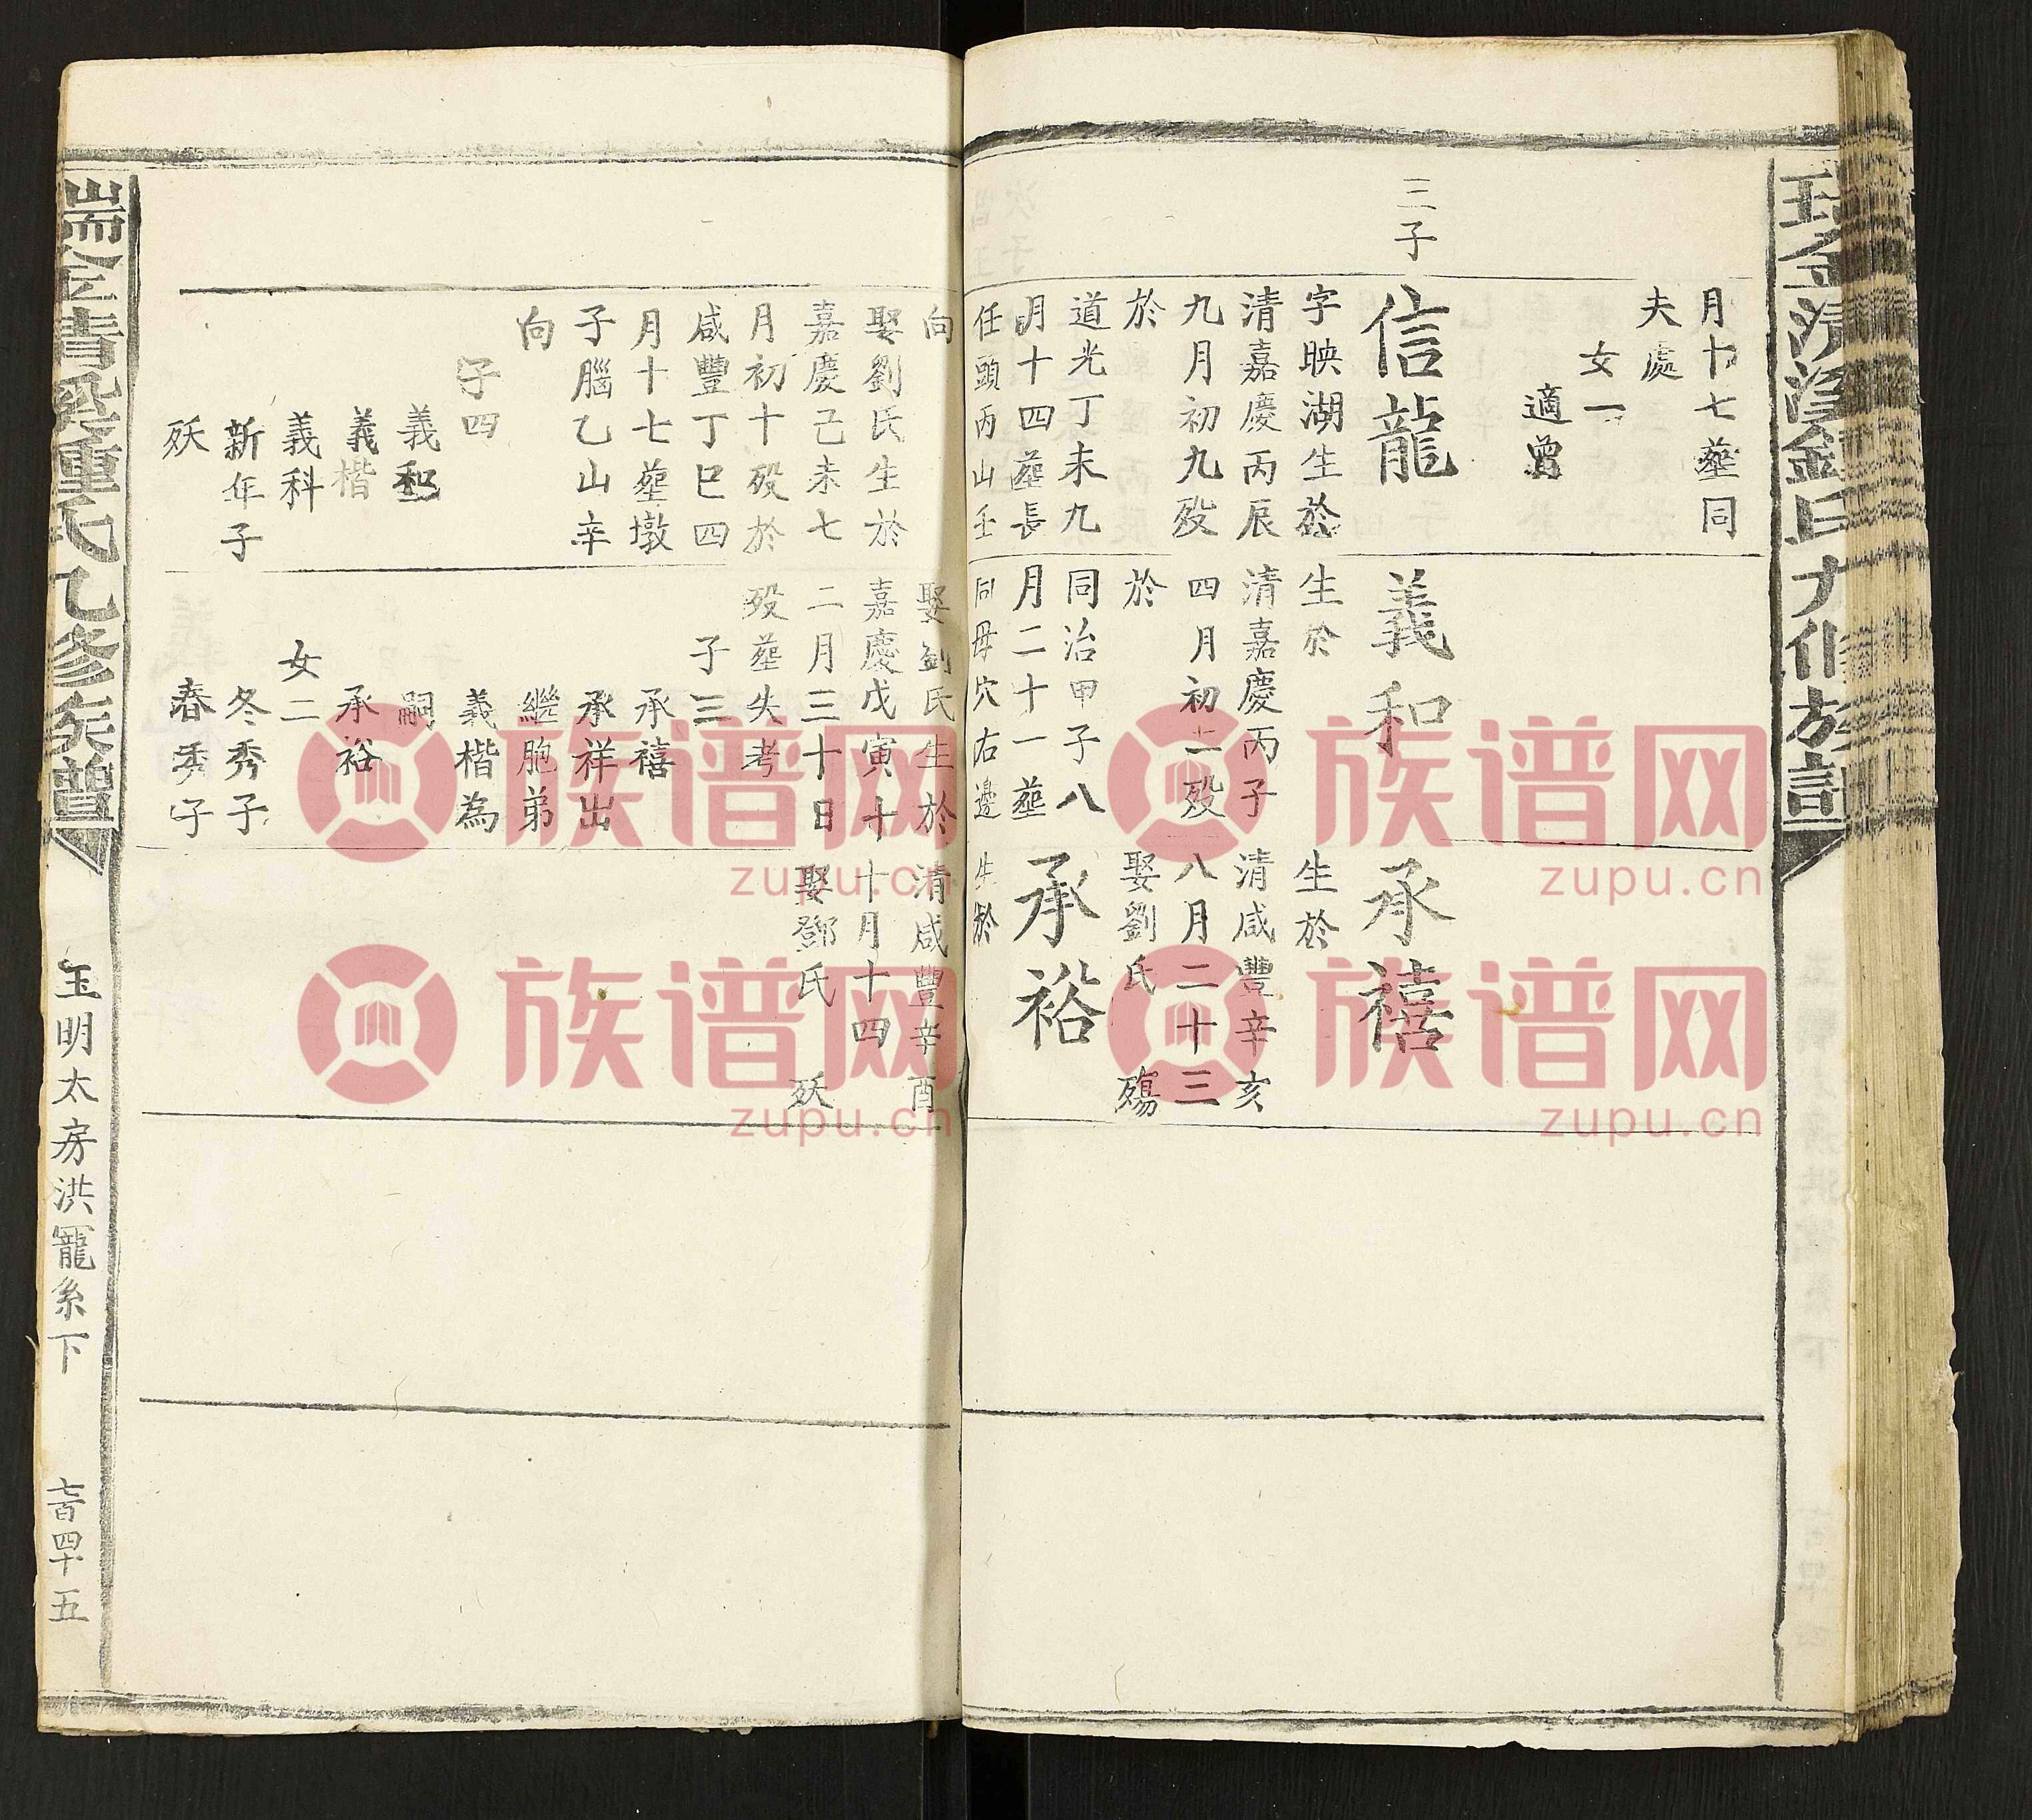 月十七塟同
夫處
女一
適曾
三子
信龍
字映湖生於
清嘉慶丙辰
九月初九殁
於
道光丁未九
月十四塟長
任頭丙山壬
向
娶劉氏生於
嘉慶己未七
月初十殁於
咸豐丁巳四
月十七塟墩
子腦乙山辛
向
子四
義和
義楷
義科
新年子
殀
義和
生於
清嘉慶丙子
四月初二殁
於
同治甲子八
月二十一塟
同母穴右邊
娶劉氏生於
嘉慶戊寅十
二月三十日
殁塟失考
子三
承禧
承祥出
繼胞弟
義楷為
嗣
承裕
女二
冬秀子
春秀子
承禧
生於
清咸豐辛亥
八月二十三
娶劉氏 殤
承裕
生於
清咸豐辛酉
十月十四
娶鄧氏 殀
玉明太房洪寵系下
七百四十五
族谱网
zupu.cn
族谱网
zupu.cn
族谱网
zupu.cn
族谱网
zupu.cn